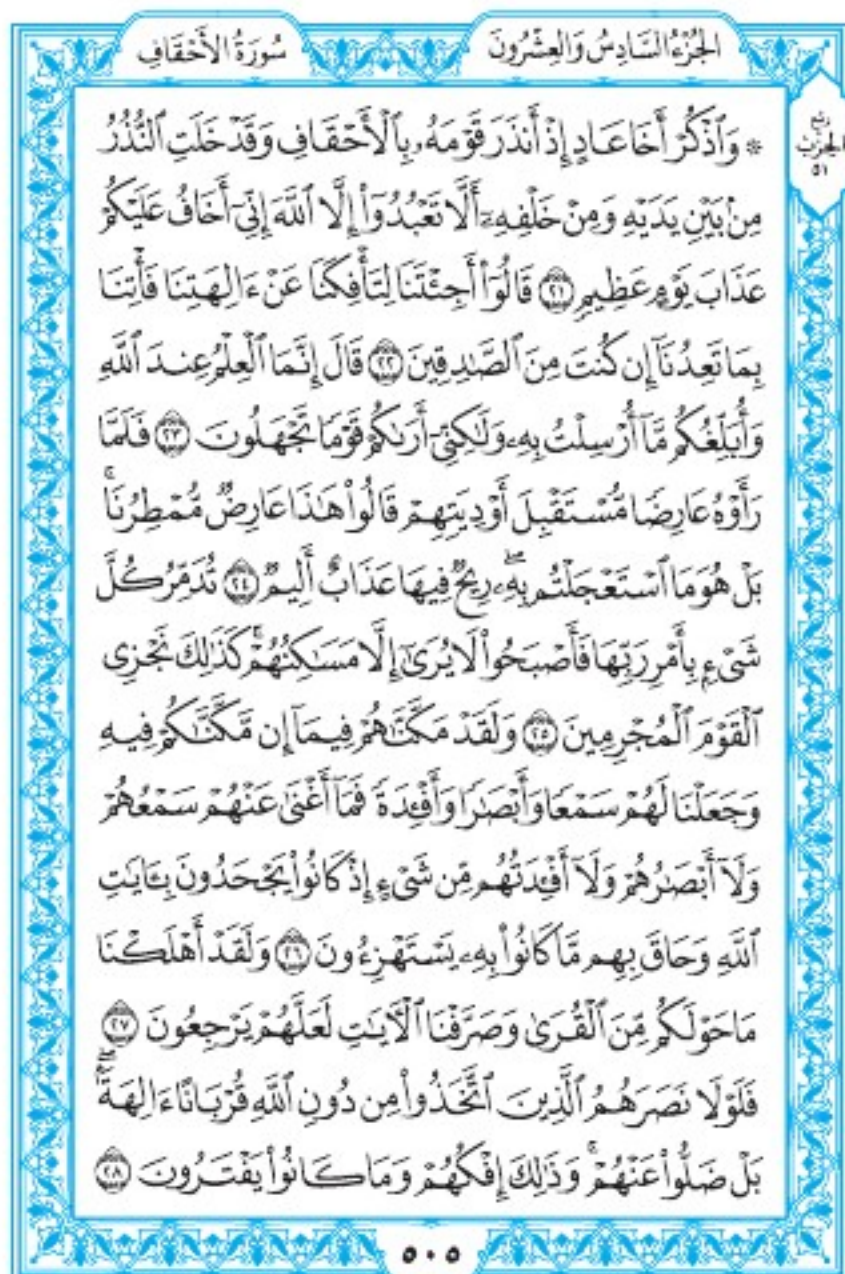 الجُزْءُ السَّادِسُ وَالعِشْرُونَ
سُورَةُ الأَحْقَافِ
رُبْع
الحِزْب
٥١
۞ وَٱذۡكُرۡ أَخَا عَادٍ إِذۡ أَنذَرَ قَوۡمَهُۥ بِٱلۡأَحۡقَافِ وَقَدۡ خَلَتِ ٱلنُّذُرُ
مِنۢ بَيۡنِ يَدَيۡهِ وَمِنۡ خَلۡفِهِۦٓ أَلَّا تَعۡبُدُوٓاْ إِلَّا ٱللَّهَ إِنِّيٓ أَخَافُ عَلَيۡكُمۡ
عَذَابَ يَوۡمٍ عَظِيمٖ ٢١ قَالُوٓاْ أَجِئۡتَنَا لِتَأۡفِكَنَا عَنۡ ءَالِهَتِنَا فَأۡتِنَا
بِمَا تَعِدُنَآ إِن كُنتَ مِنَ ٱلصَّٰدِقِينَ ٢٢ قَالَ إِنَّمَا ٱلۡعِلۡمُ عِندَ ٱللَّهِ
وَأُبَلِّغُكُم مَّآ أُرۡسِلۡتُ بِهِۦ وَلَٰكِنِّيٓ أَرَىٰكُمۡ قَوۡمٗا تَجۡهَلُونَ ٢٣ فَلَمَّا
رَأَوۡهُ عَارِضٗا مُّسۡتَقۡبِلَ أَوۡدِيَتِهِمۡ قَالُواْ هَٰذَا عَارِضٞ مُّمۡطِرُنَاۚ
بَلۡ هُوَ مَا ٱسۡتَعۡجَلۡتُم بِهِۦۖ رِيحٞ فِيهَا عَذَابٌ أَلِيمٞ ٢٤ تُدَمِّرُ كُلَّ
شَيۡءِۭ بِأَمۡرِ رَبِّهَا فَأَصۡبَحُواْ لَا يُرَىٰٓ إِلَّا مَسَٰكِنُهُمۡۚ كَذَٰلِكَ نَجۡزِي
ٱلۡقَوۡمَ ٱلۡمُجۡرِمِينَ ٢٥ وَلَقَدۡ مَكَّنَّٰهُمۡ فِيمَآ إِن مَّكَّنَّٰكُمۡ فِيهِ
وَجَعَلۡنَا لَهُمۡ سَمۡعٗا وَأَبۡصَٰرٗا وَأَفۡـِٔدَةٗ فَمَآ أَغۡنَىٰ عَنۡهُمۡ سَمۡعُهُمۡ
وَلَآ أَبۡصَٰرُهُمۡ وَلَآ أَفۡـِٔدَتُهُم مِّن شَيۡءٍ إِذۡ كَانُواْ يَجۡحَدُونَ بِـَٔايَٰتِ
ٱللَّهِ وَحَاقَ بِهِم مَّا كَانُواْ بِهِۦ يَسۡتَهۡزِءُونَ ٢٦ وَلَقَدۡ أَهۡلَكۡنَا
مَا حَوۡلَكُم مِّنَ ٱلۡقُرَىٰ وَصَرَّفۡنَا ٱلۡأٓيَٰتِ لَعَلَّهُمۡ يَرۡجِعُونَ ٢٧
فَلَوۡلَا نَصَرَهُمُ ٱلَّذِينَ ٱتَّخَذُواْ مِن دُونِ ٱللَّهِ قُرۡبَانًا ءَالِهَةَۢۖ
بَلۡ ضَلُّواْ عَنۡهُمۡۚ وَذَٰلِكَ إِفۡكُهُمۡ وَمَا كَانُواْ يَفۡتَرُونَ ٢٨
٥٠٥